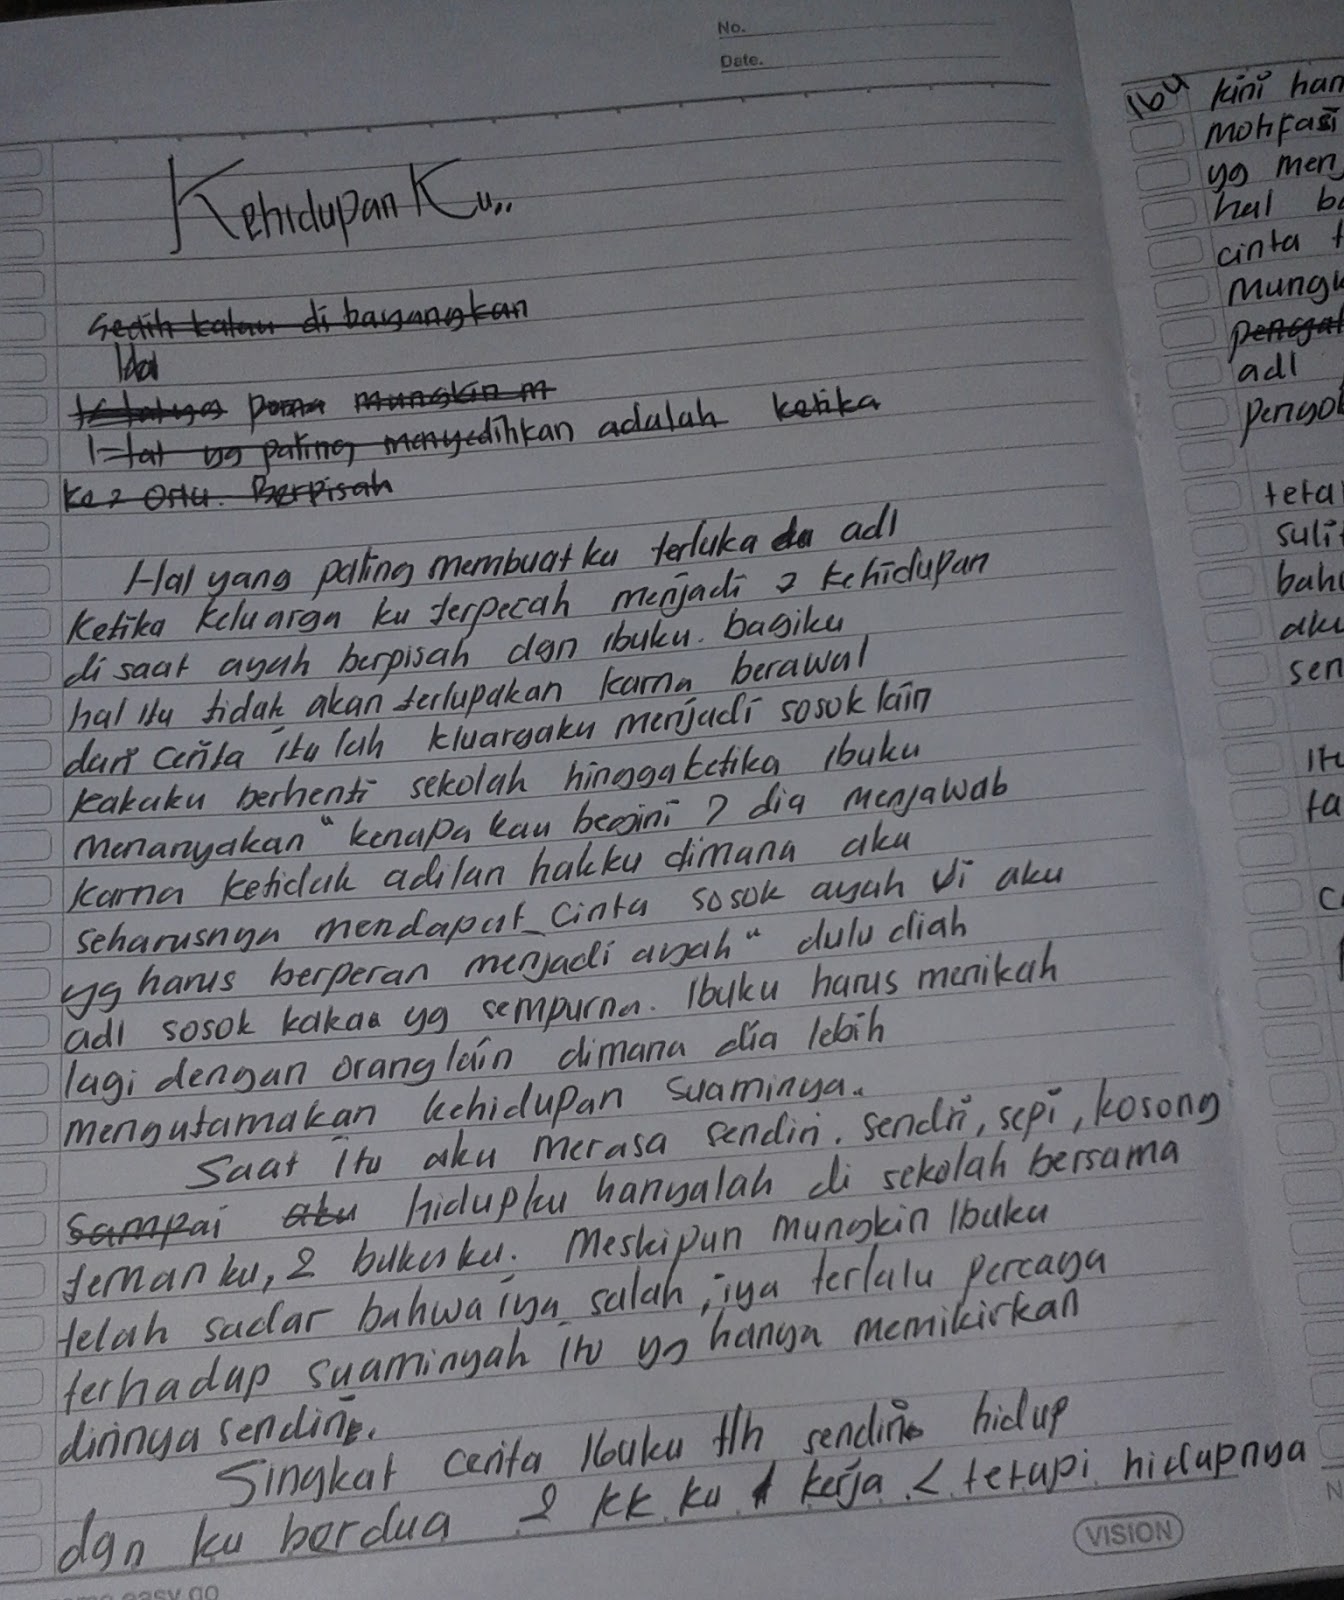 No.
Date.
Kehidupan Ku,,
sedih kalau di bayangkan
Hal
mungkin m
Hal yg paling menyedihkan adalah ketika
ke 2 Ortu. Berpisah
Hal yang paling membuat ku terluka adl
ketika keluarga ku terpecah menjadi 2 kehidupan
di saat ayah berpisah dgn ibuku. bagiku
hal itu tidak akan terlupakan karna berawal
dari cerita itu lah kluargaku menjadi sosok lain
kakaku berhenti sekolah hingga ketika ibuku
menanyakan "kenapa kau begini ? dia menjawab
karna ketidak adilan hakku dimana aku
seharusnya mendapat cinta sosok ayah di aku
yg harus berperan menjadi ayah" dulu diah
adl sosok kakaa yg sempurna. Ibuku harus menikah
lagi dengan orang lain dimana dia lebih
mengutamakan kehidupan suaminya..
Saat itu aku merasa sendiri. sendri, sepi, kosong
sampai aku hidupku hanyalah di sekolah bersama
temanku, 2 bukuku. Meskipun mungkin Ibuku
telah sadar bahwa iya salah, iya terlalu percaya
terhadap suaminyah itu yg hanya memikirkan
dirinya sendiri.
Singkat cerita Ibuku tlh sendiri hidup
dgn ku berdua 2 kk ku kerja < tetapi hidupnya
VISION
Ibu kini han
motifasi
yg men
hal b
cinta t
mungk
adl
pengo
teta
suli
bah
aku
sen
itu
ta
c